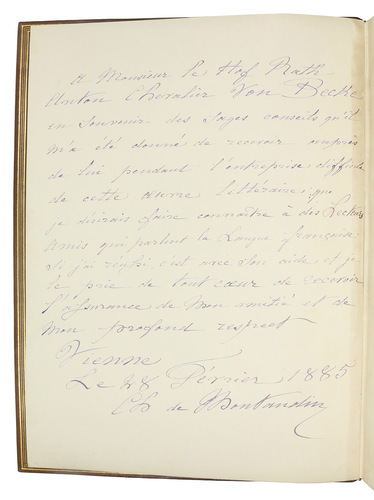 A Monsieur le Hof Rath
Anton Chevalier Von Becke
en souvenir des sages conseils qu'il
m'a été donné de recevoir auprès
de lui pendant l'entreprise difficile
de cette œuvre littéraire, que
je désirais faire connaître à des Lecteurs
Amis qui parlent la Langue française.
Si j'ai réussi, c'est avec son aide et je
le prie de tout cœur de recevoir
l'assurance de mon amitié et de
mon profond respect
Vienne
Le 28 Février 1885
Ch de Montandin